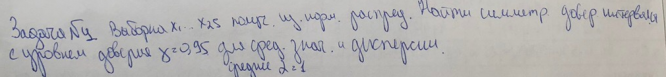 Задача №1 Выборка x₁... x₂₅ получ. из норм. распред. Найти симметр. довер интервалы
с уровнем доверия γ=0,95 для сред. знач. и дисперсии.
среднее α=1